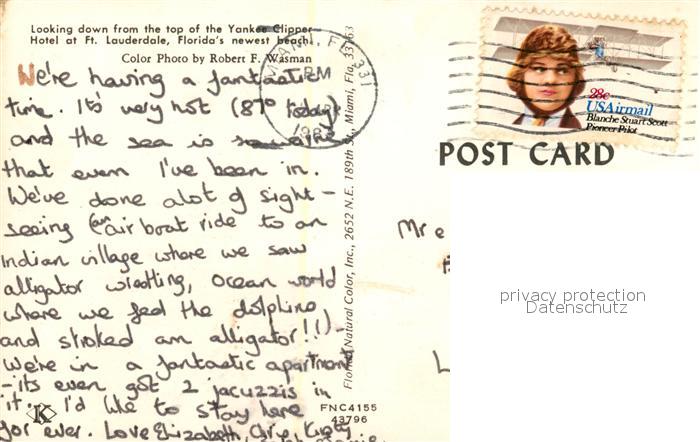 Looking down from the top of the Yankee Clipper
Hotel at Ft. Lauderdale, Florida's newest beach!
Color Photo by Robert F. Wasman
We're having a fantastic
time. It's very hot (87° today)
and the sea is so
that even I've been in.
We've done alot of sight-
seeing (an air boat ride to an
indian village where we saw
alligator wrestling, ocean world
where we fed the dolphins
and stroked an alligator!!)-
We're in a fantastic apartment
- its even got 2 jacuzzis in
it. I'd like to stay here
for ever. Love Elizabeth, Chris, Kirsty,
K
FNC4155
43796
Florida Natural Color, Inc., 2652 N.E. 189th St., Miami, Fla. 33163
MIAMI, FL 331
PM
28c
USAirmail
Blanche Stuart Scott
Pioneer Pilot
POST CARD
Mr
privacy protection
Datenschutz